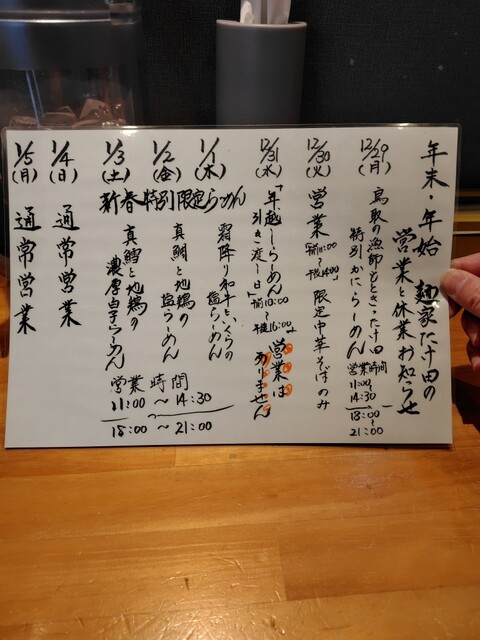 年末・年始 麺家たけ田の
営業と休業お知らせ
12/29(月)
鳥取の漁師もときったけ田
特別かにらーめん
営業時間
11:00
14:30
18:00〜
21:00
12/30(火)
営業
午前11:00〜
午後14:00
限定中華そばのみ
12/31(水)
「年越しらーめん
引き渡し日」
午前10:00〜
午後16:00
営業は
ありません
新春特別限定らーめん
1/1(木)
霜降り和牛といくらの
塩らーめん
1/2(金)
真鯛と地鶏の
塩らーめん
1/3(土)
真鱈と地鶏の
濃厚白子らーめん
営業時間
11:00 〜 14:30
18:00 〜 21:00
1/4(日)
通常営業
1/5(月)
通常営業